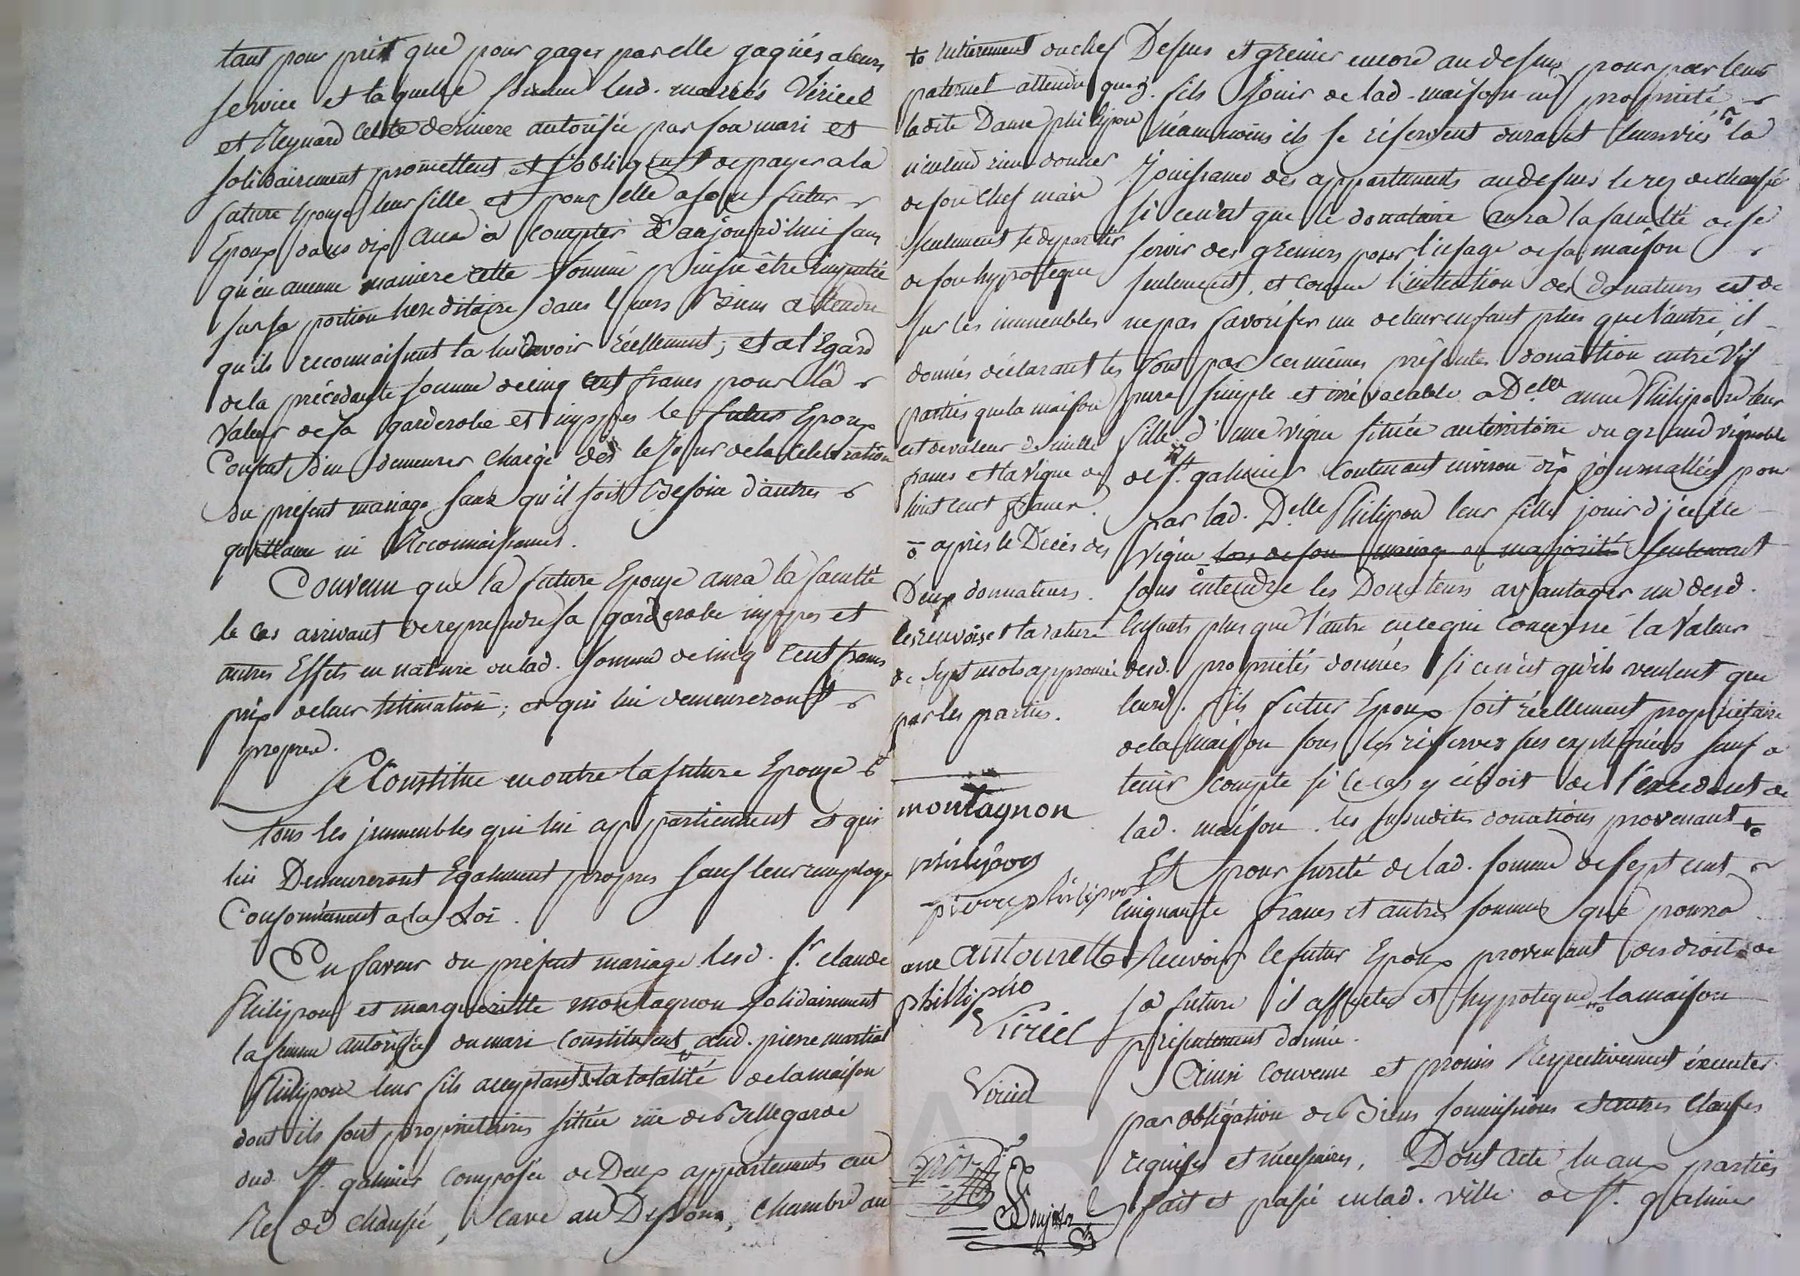 tant pour prix que pour gages par elle gagnés a leurs
service et laquelle somme lesd. mariés Viricel
et Reynard cette derniere autorisée par son mari et
solidairement promettent et s'obligent de payer a la
future Epouse leur fille et pour elle a son futur
Epoux dans dix ans a compter d'aujourd'hui sans
qu'en aucune maniere cette somme puisse être imputée
sur sa portion hereditaire dans leurs Biens attendu
qu'ils reconnaissent la lui devoir réellement ; et a l'Egard
de la précédente somme de cinq cent francs pour la
valeur de sa garderobe et nippes le futur Epoux
Consent d'en demeurer chargé dès le Jour de la Celebration
du présent mariage sans qu'il soit Besoin d'autres
quittance ni Reconnaissances.
Convenu que la future Epouse aura la faculté
le cas arrivant de reprendre sa garderobe nippes et
autres Effets en nature ou lad. somme de cinq cent francs
prix de leur Estimation ; et qui lui demeureront
propres.
Se Constitue en outre la future Epouse
tous les immeubles qui lui appartiennent et qui
lui Demeureront Egalement propres sauf leur remploye
Conformement a la Loi.
En faveur du présent mariage lesd. Sr. claude
Philipon et marguerite montagnon solidairement
la femme autorisée du mari constituent aud. pierre martial
Philipon leur fils acceptant la totalité de la maison
dont ils sont propriétaires située rüe de Bellegarde
dud. St. galmier composée de Deux appartements au
Rez de chaussé, Cave au Dessous, chambre au
+o entierement du chef
paternel attendu que
ladite Dame philipon
n'entend rien donner
de son chef mais
seulement se départir
de son hypoteque
sur les immeubles
donnés déclarant les
parties que la maison
est de valeur de mille
francs et la vigne de
huit cent francs.
o après le Décès des
Deux donnateurs.
les renvoies et la rature
de sept mots approuvée
par les parties.
montagnon
philipon
pierre philipon
antoinette
phillipio
Viricel
Viricel
Dessus et grenier encore au dessus pour par leur
fils Jouir de lad. maison en propriété
néanmoins ils se réservent durant leurs vies la
Jouissance des appartements au dessus le rez de chaussé
si ce n'est que le donataire aura la faculté de se
servir des greniers pour l'usage de sa maison
seulement, et comme l'intention des donateurs est de
ne pas favoriser un de leur enfant plus que l'autre, il
font par ces mêmes présentes donation entre Vifs
pure simple et irrévocable a Delle anne Philipon leur
fille d'une vigne située au territoire du grand vignoble
de St. galmier contenant environ dix journallées pour
par lad. Delle Philipon leur fille jouir d'icelle
Vigne lors de son mariage ou majorité seulement
sans entendre les Donateurs avantager un desd.
Enfants plus que l'autre en ce qui concerne la Valeur
desd. propriétés données si ce n'est qu'ils veulent que
leurd. fils futur Epoux soit réellement propriétaire
de la maison sous les réserves sus expliquées sauf a
tenir compte si le cas y échoit de l'excedent de
lad. maison. les susdites donations provenant +o
Et pour sureté de lad. somme de sept cent
cinquante francs et autres sommes que pourra
Recevoir le futur Epoux provenant des droits de
sa future il affecte et hypoteque la maison
présentement donnée.
Ainsi convenu et promis Respectivement éxecuter
par obligation de Biens soumissions et autres clauses
requises et nécessaires. Dont acte lu aux parties
fait et passé en lad. ville de St. galmier